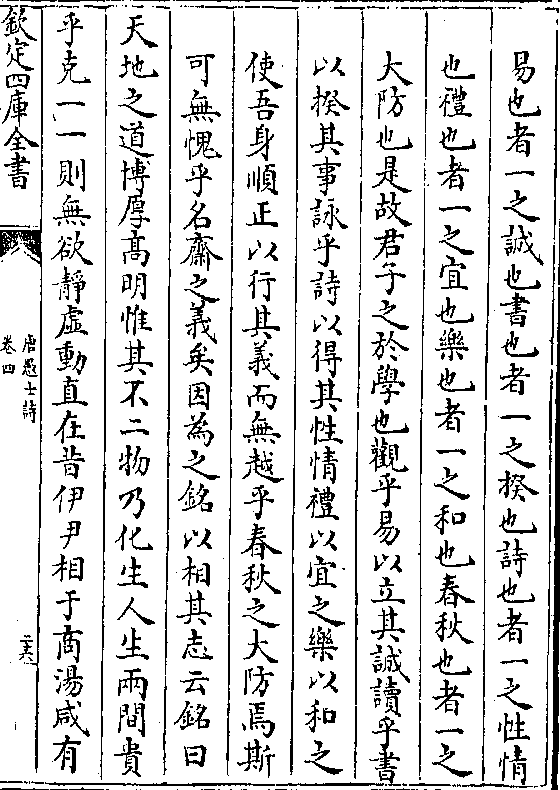 易也者一之誠也書也者一之揆也詩也者一之性情
也禮也者一之宜也樂也者一之和也春秋也者一之
大防也是故君子之於學也觀乎易以立其誠讀乎書
以揆其事詠乎詩以得其性情禮以宜之樂以和之
使吾身順正以行其義而無越乎春秋之大防焉斯
可無愧乎名齋之義矣因為之銘以相其志云銘曰
天地之道博厚髙明惟其不二物乃化生人生兩間貴
乎克一一則無欲靜虛動直在昔伊尹相于商湯咸有
欽定四庫全書
唐愚士詩
卷四